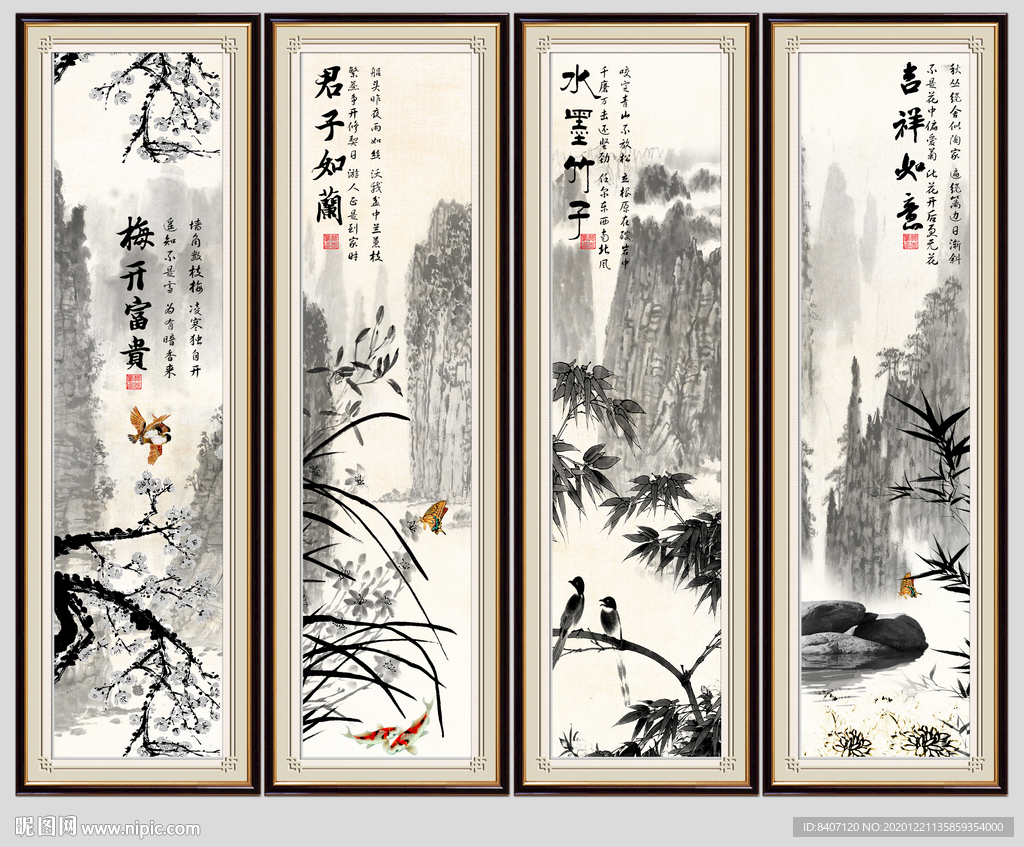 梅开富貴
墙角数枝梅 凌寒独自开
遥知不是雪 为有暗香来
君子如蘭
船头昨夜雨如丝 沃我盆中兰蕙枝
繁蕊争开修契日 游人正是到家时
水墨竹子
咬定青山不放松 立根原在破岩中
千磨万击还坚劲 任尔东西南北風
吉祥如意
秋丛绕舍似陶家 遍绕篱边日渐斜
不是花中偏爱菊 此花开后更无花
昵图网 www.nipic.com
ID:8407120 NO:20201221135859354000